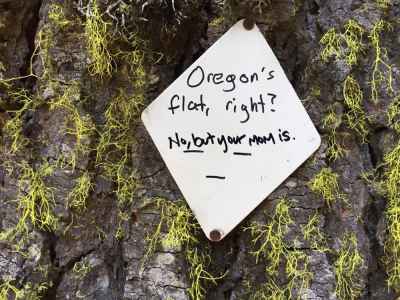 Oregon's
flat, right?
No, but your mom is.